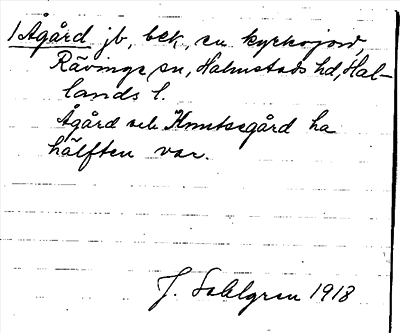 1 Ågård jb, bek, en kyrkojord,
Rävinge sn, Halmstads hd, Hal-
lands l.
Ågård och Knutsgård ha
hälften var.
J. Sahlgren 1918